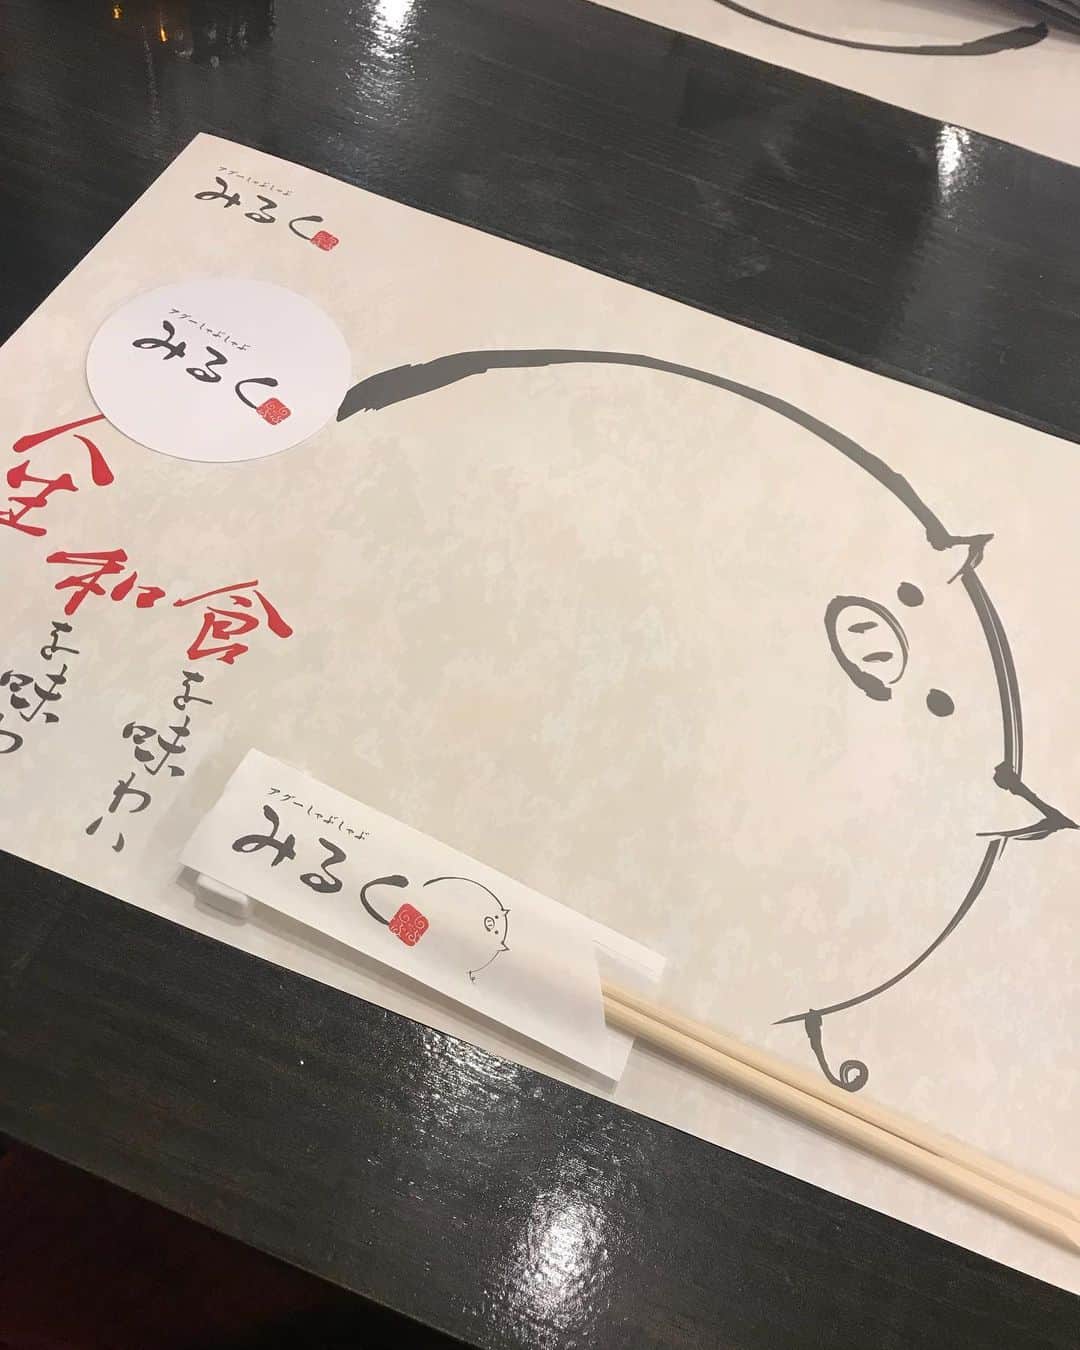 アグーしゃぶしゃぶ
みるく
アグーしゃぶしゃぶ
みるく
食を味わい
和を味わ
アグーしゃぶしゃぶ
みるく